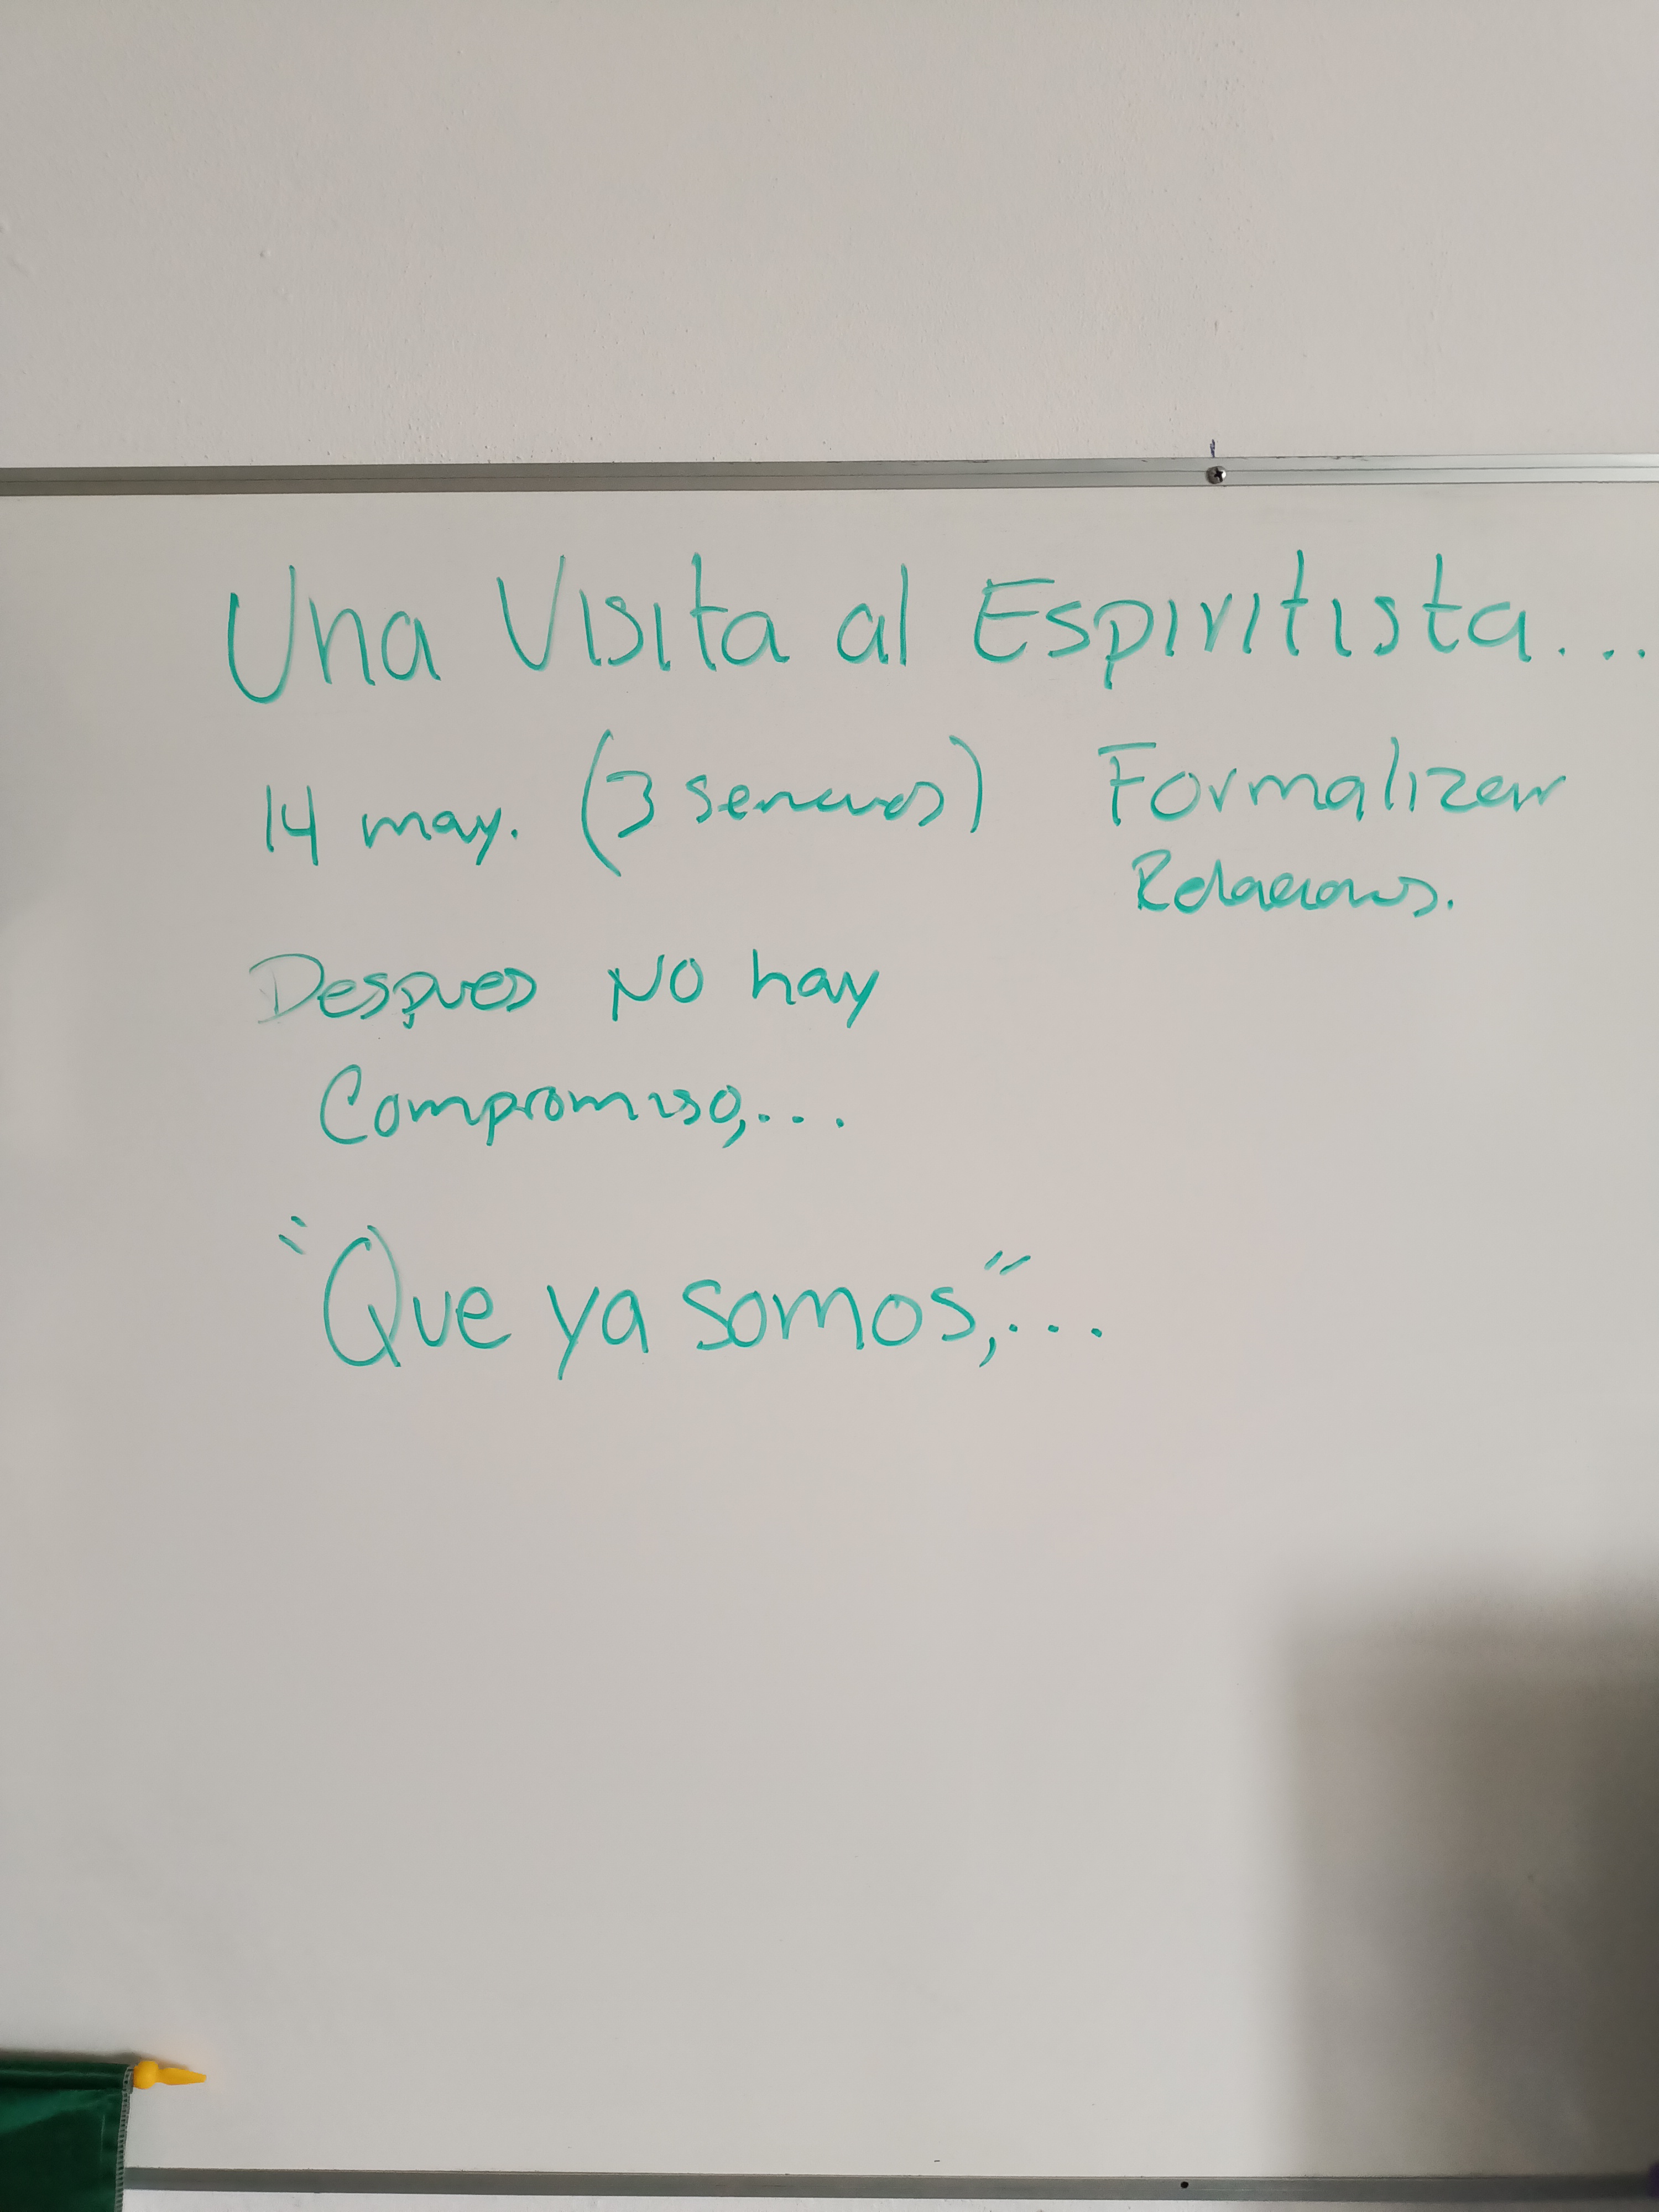 Una Visita al Espiritista...
14 may. (3 semanas) Formalizar
Relaciones.
Despues NO hay
Compromiso,...
"Que ya somos,"...